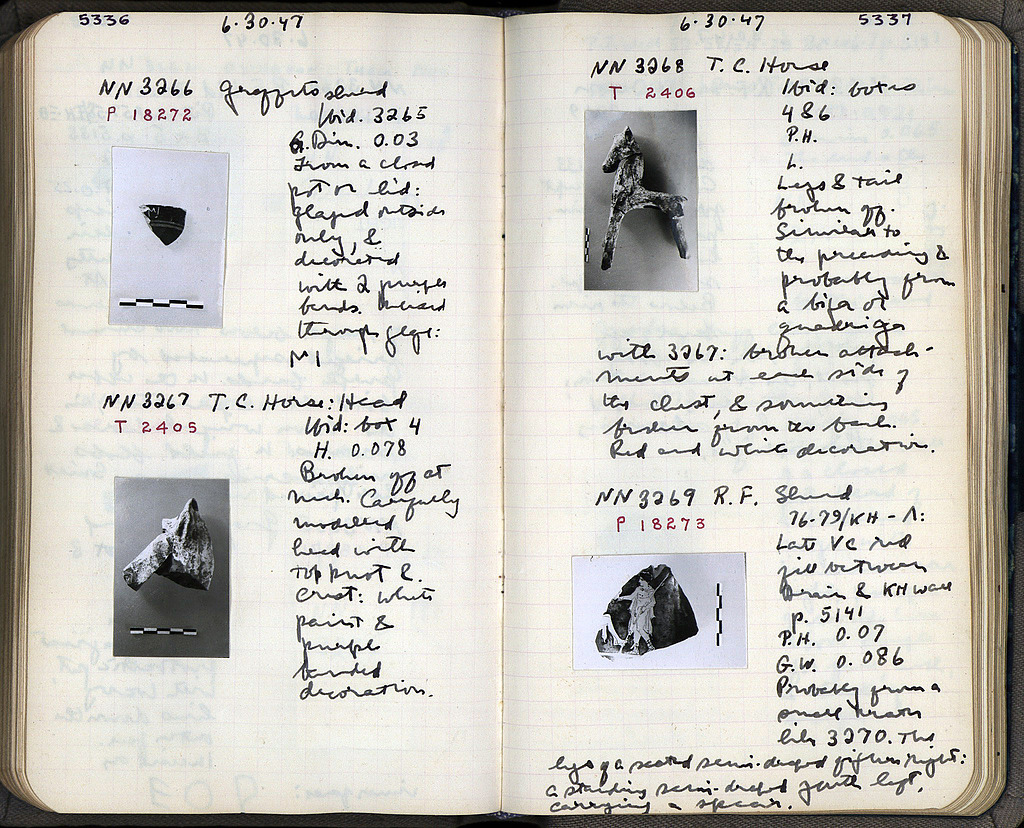 5336
6.30.47
NN 3266 Graffito sherd
P 18272
Ibid. 3265
G. Dim. 0.03
From a closed
pot or lid:
glazed outside
only, &
decorated
with 2 purple
bands. Incised
through glaze:
NN 3267 T.C. Horse: Head
T 2405
Ibid: box 4
H. 0.078
Broken off at
neck. Carefully
modelled
head with
topknot &
crest: white
paint &
purple
banded
decoration.
6.30.47
5337
NN 3268 T.C. Horse
T 2406
Ibid: boxes
4 & 6
P.H.
L.
Legs & tail
broken off.
Similar to
the preceding &
probably from
a biga or
quadriga
with 3267: broken attach-
ments at each side of
the chest, & something
broken from the back.
Red and white decoration.
NN 3269 R.F. Sherd
P 18273
76-79/KH-Λ:
Late VC red
fill between
Drain & KH wall
p. 5141
P.H. 0.07
G.W. 0.086
Probably from a
small krater
like 3270. The
legs of a seated semi-draped figure, right:
a standing semi-draped youth left,
carrying a spear.